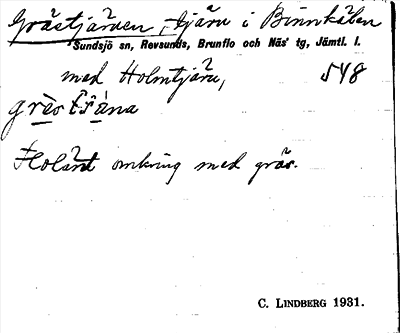 Grästjärnen, Tjärn i Binnkälen
Sundsjö sn, Revsunds, Brunflo och Näs' tg, Jämtl. l.
med Holmtjärn, 548
Holänt omkring med gräs.
C. LINDBERG 1931.